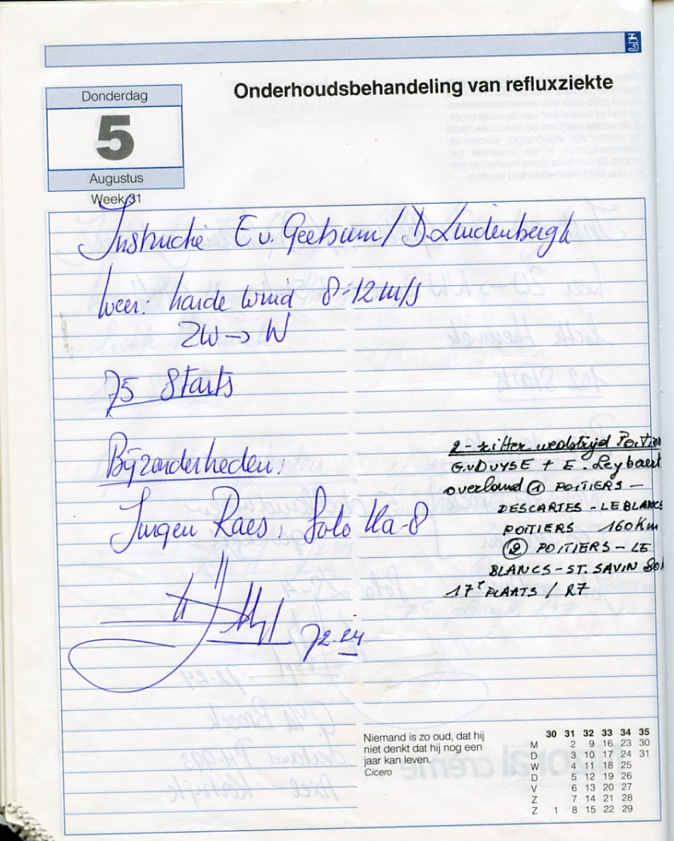 Onderhoudsbehandeling van refluxziekte
Donderdag
5
Augustus
Week 31
Instructie E v. Geetsum / D. Lindenbergh
Weer: harde wind 8-12 m/s
ZW → W
75 Starts
Bijzonderheden:
Jurgen Raes, Solo Ka-8
72-24
2-zitter wedstrijd Poitier
G.v DUYSE + E. Leybaert
overland ① POITIERS -
DESCARTES - LE BLANCS
POITIERS 160 Km
② POITIERS - LE
BLANCS - ST. SAVIN 80
17e PLAATS / 27
Niemand is zo oud, dat hij
niet denkt dat hij nog een
jaar kan leven.
Cicero
30 31 32 33 34 35
M 2 9 16 23 30
D 3 10 17 24 31
W 4 11 18 25
D 5 12 19 26
V 6 13 20 27
Z 7 14 21 28
Z 1 8 15 22 29